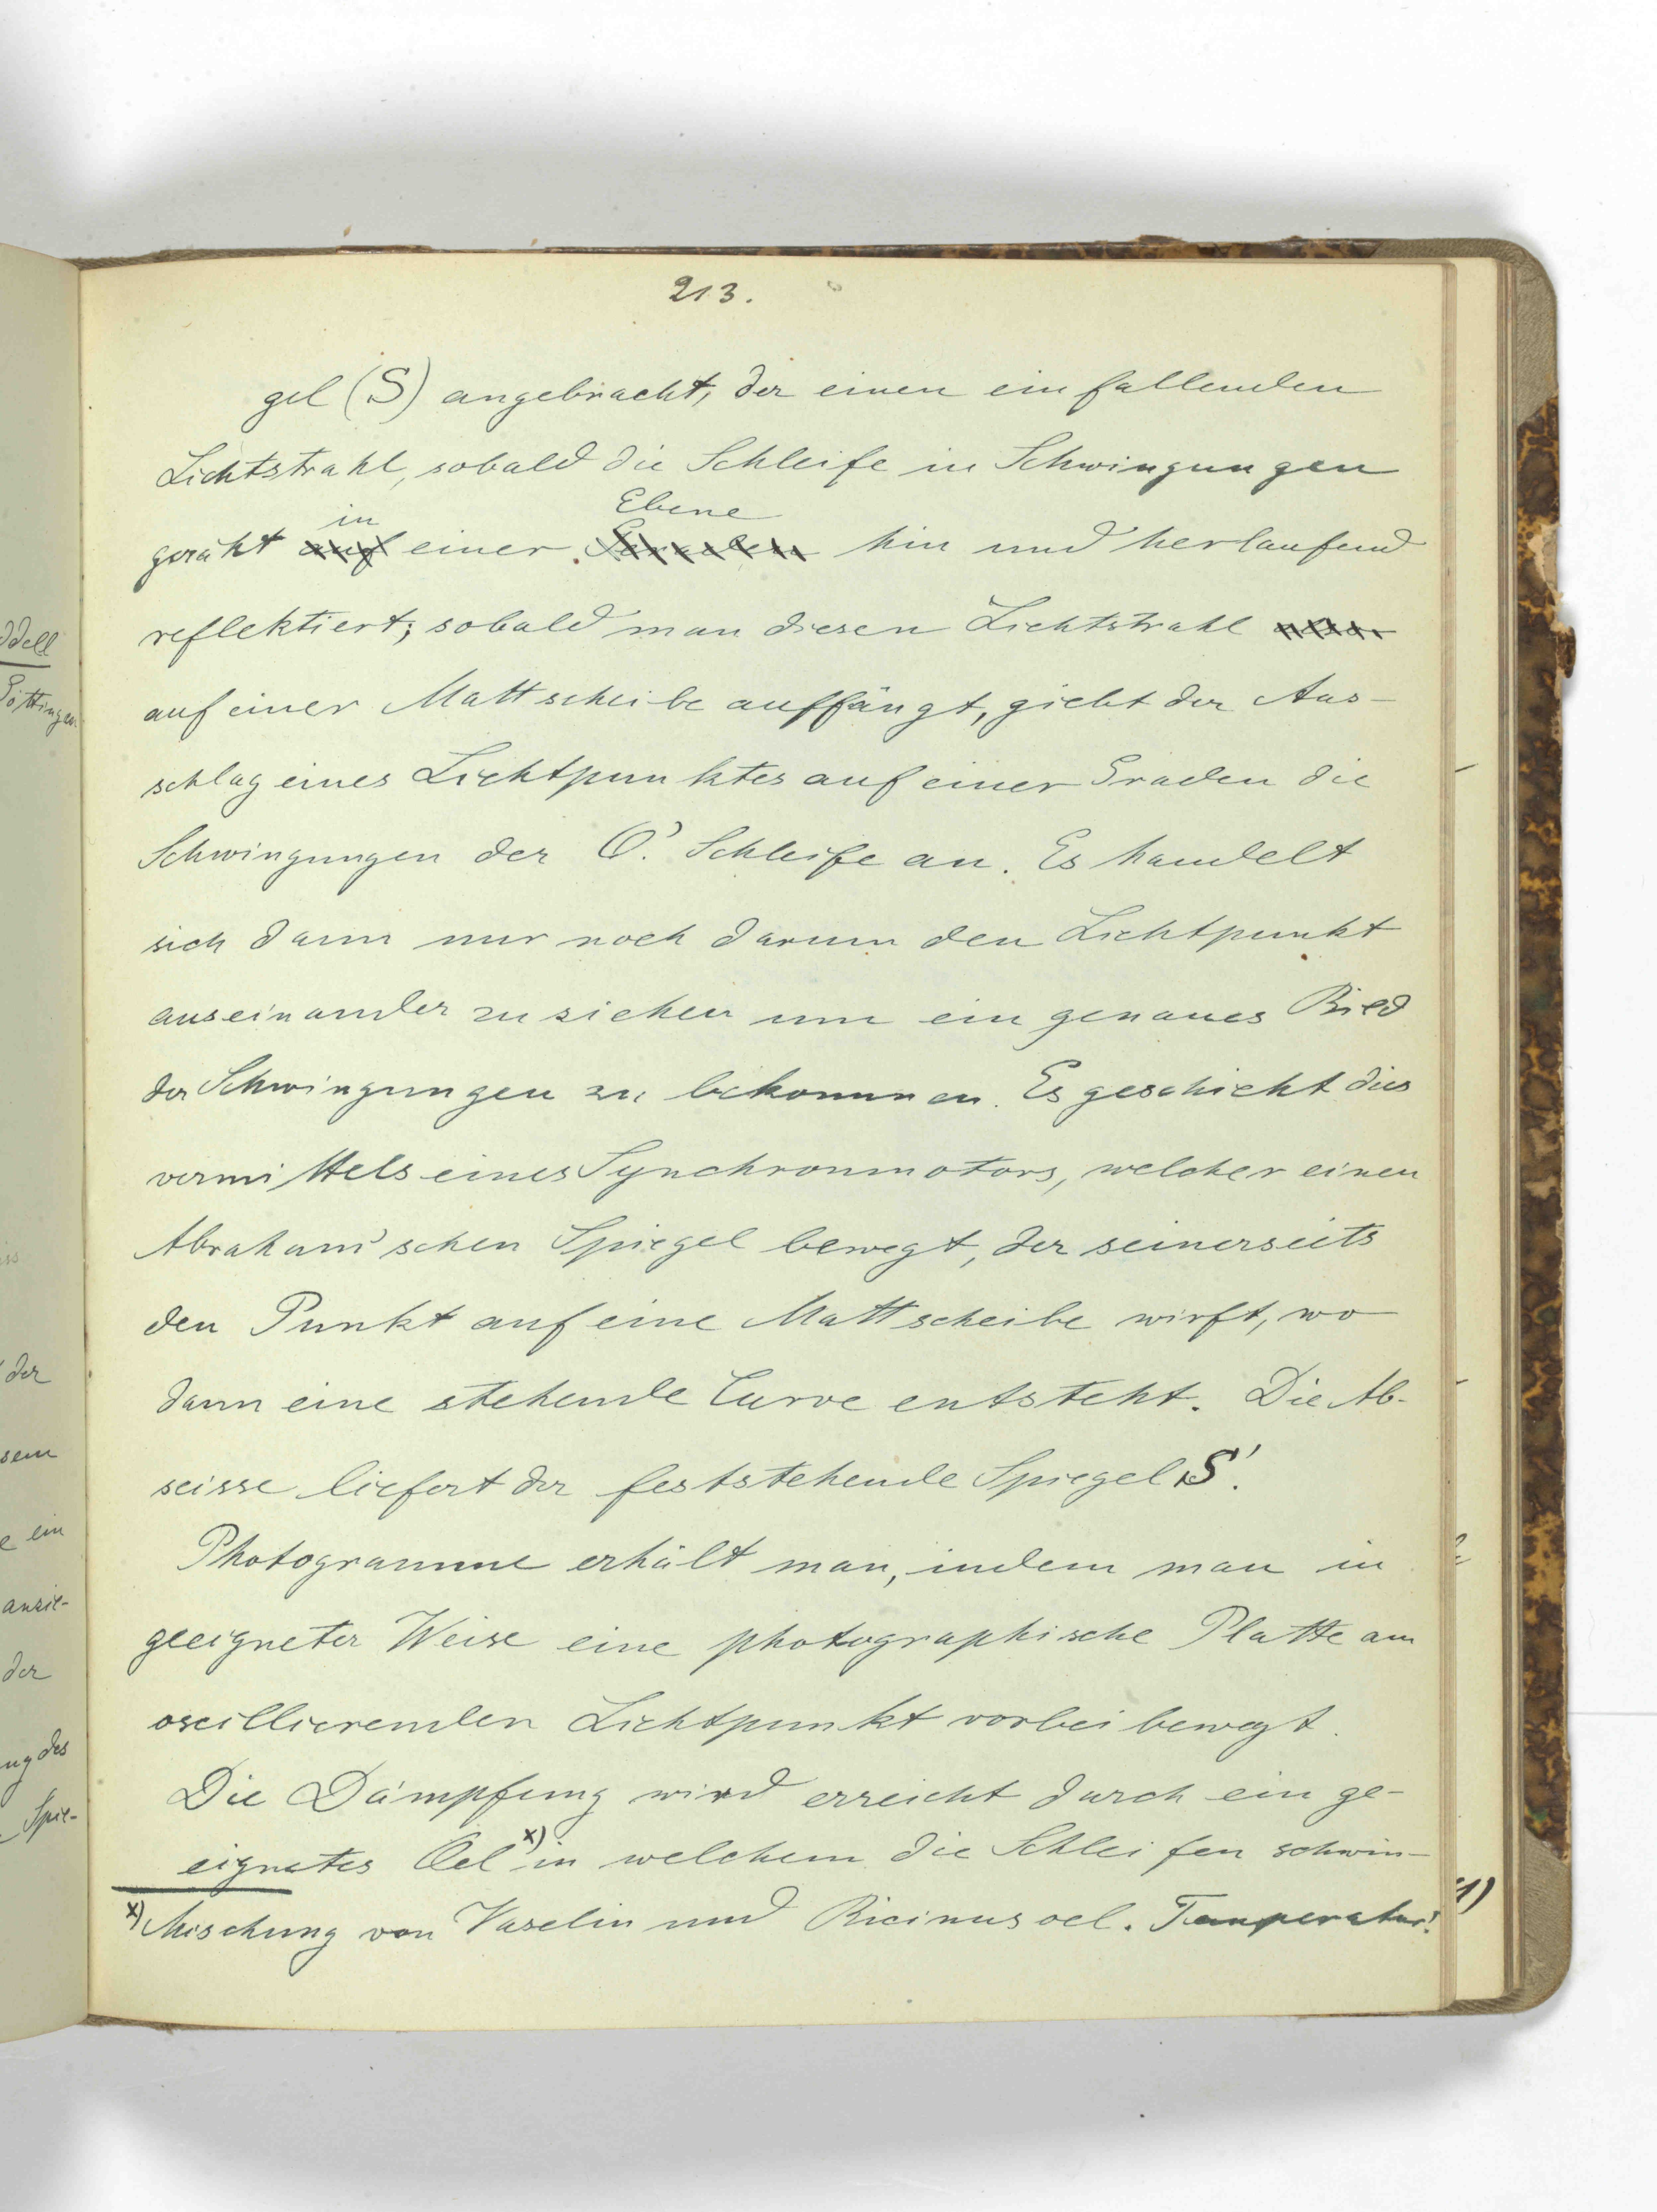 213.
gel (S) angebracht, der einen einfallenden
Lichtstrahl, sobald die Schleife in Schwingungen
in Ebene
geräht auf einer Geraden hin und herlaufend
reflektiert; sobald man diesen Lichtstrahl
auf einer Mattscheibe auffängt, giebt der Aus-
schlag eines Lichtpunktes auf einer Graden die
Schwingungen der O. Schleife an. Es handelt
sich dann nur noch darum den Lichtpunkt
auseinander zu ziehen um ein genaues Bild
der Schwingungen zu bekommen. Es geschieht dies
vermittels eines Synchronmotors, welcher einen
Abraham'schen Spiegel bewegt, der seinerseits
den Punkt auf eine Mattscheibe wirft, wo
dann eine stehende Curve entsteht. Die Ab-
scisse liefert der feststehende Spiegel S'.
Photogramme erhält man, indem man in
geeigneter Weise eine photographische Platte am
oscillierenden Lichtpunkt vorbei bewegt.
Die Dämpfung wird erreicht durch ein ge-
eignetes Oel x) in welchem die Schleifen schwin-
x) Mischung von Vaselin und Ricinus oel. Temperatur!
ddell
Göttingen
der
sem
e ein
anzie-
der
ng des
Spie-
1)